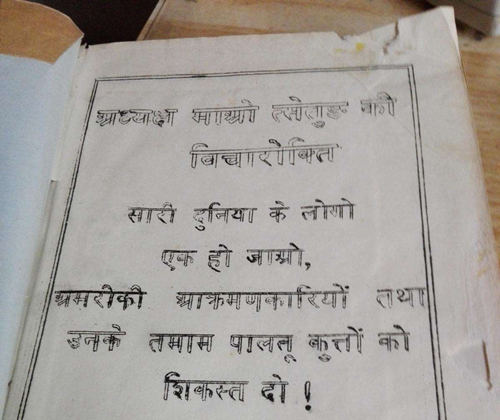 अध्यक्ष माओ त्सेतुङ की
विचारोक्ति
सारी दुनिया के लोगो
एक हो जाओ,
अमरीकी आक्रमणकारियों तथा
उनके तमाम पालतू कुत्तों को
शिकस्त दो !